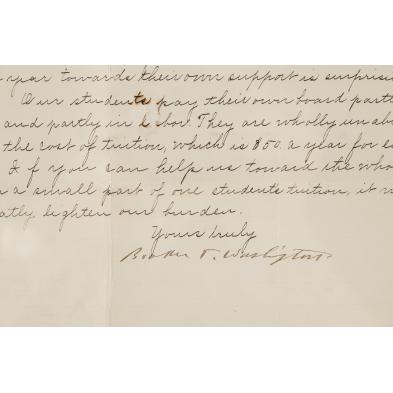 year towards their own support is surprisi
Our students pay their own board partl
and partly in labor. They are wholly unab
the cost of tuition, which is $50. a year for ea
If you can help us toward the who
a small part of one students tuition, it w
atly, lighten our burden.
Yours truly
Booker T. Washington